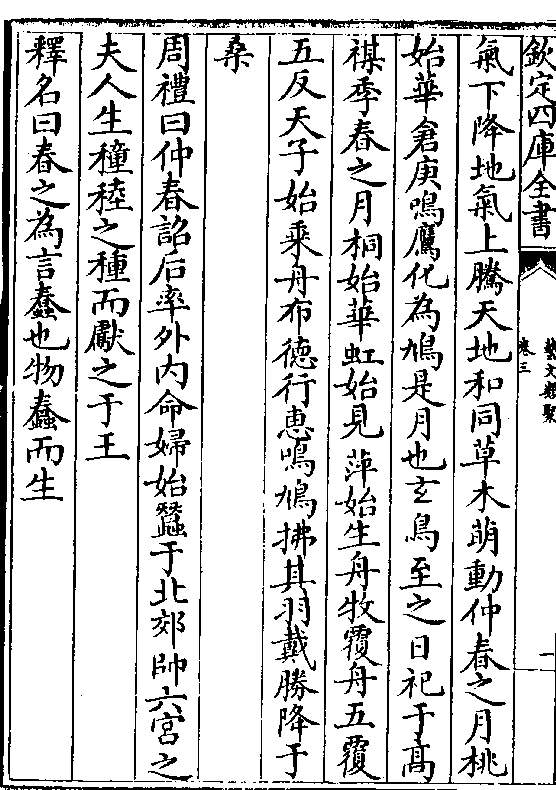 欽定四庫全書
藝文類聚
卷三
一
氣下降地氣上騰天地和同草木萌動仲春之月桃
始華倉庚鳴鷹化為鳩是月也玄鳥至之日祀于髙
禖季春之月桐始華虹始見萍始生舟牧覆舟五覆
五反天子始乘舟布德行惠鳴鳩拂其羽戴勝降于
桑
周禮曰仲春詔后率外内命婦始蠶于北郊帥六宮之
夫人生穜稑之種而獻之于王
釋名曰春之為言蠢也物蠢而生